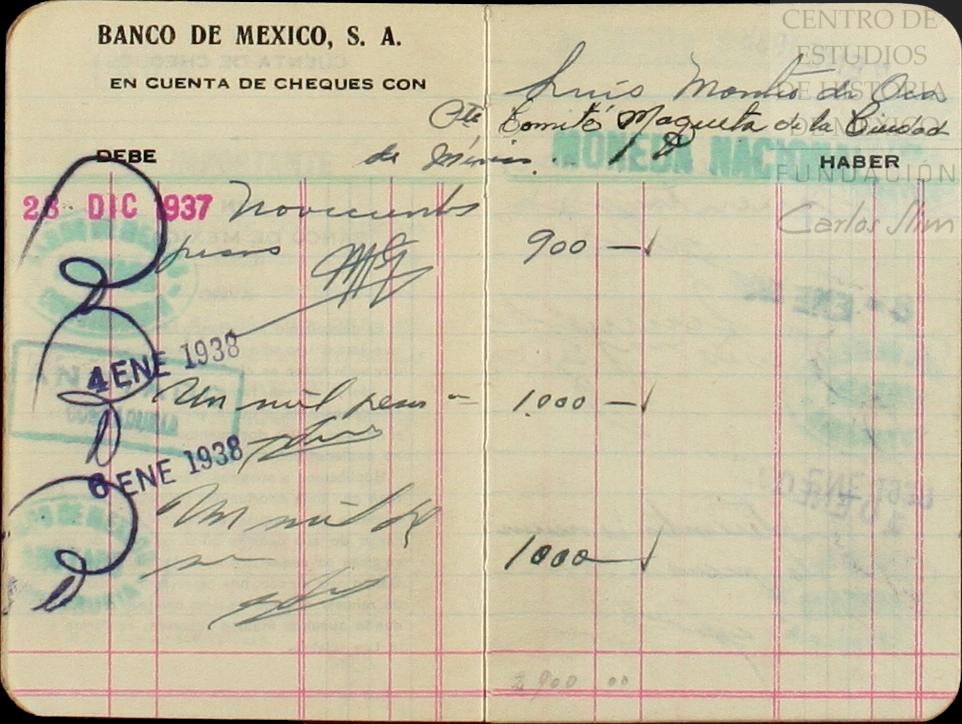 BANCO DE MEXICO, S. A.
EN CUENTA DE CHEQUES CON
Luis Montes de Oca
Pte Comité Maqueta de la Ciudad
de México.
MONEDA NACIONAL
DEBE
HABER
28 DIC 1937 Novecientos
pesos 900
4 ENE 1938
Un mil pesos 1.000
6 ENE 1938
Un mil pe
sos 1000
2900 00
CENTRO DE
ESTUDIOS
DE HISTORIA
DE MÉXICO
FUNDACIÓN
Carlos Slim